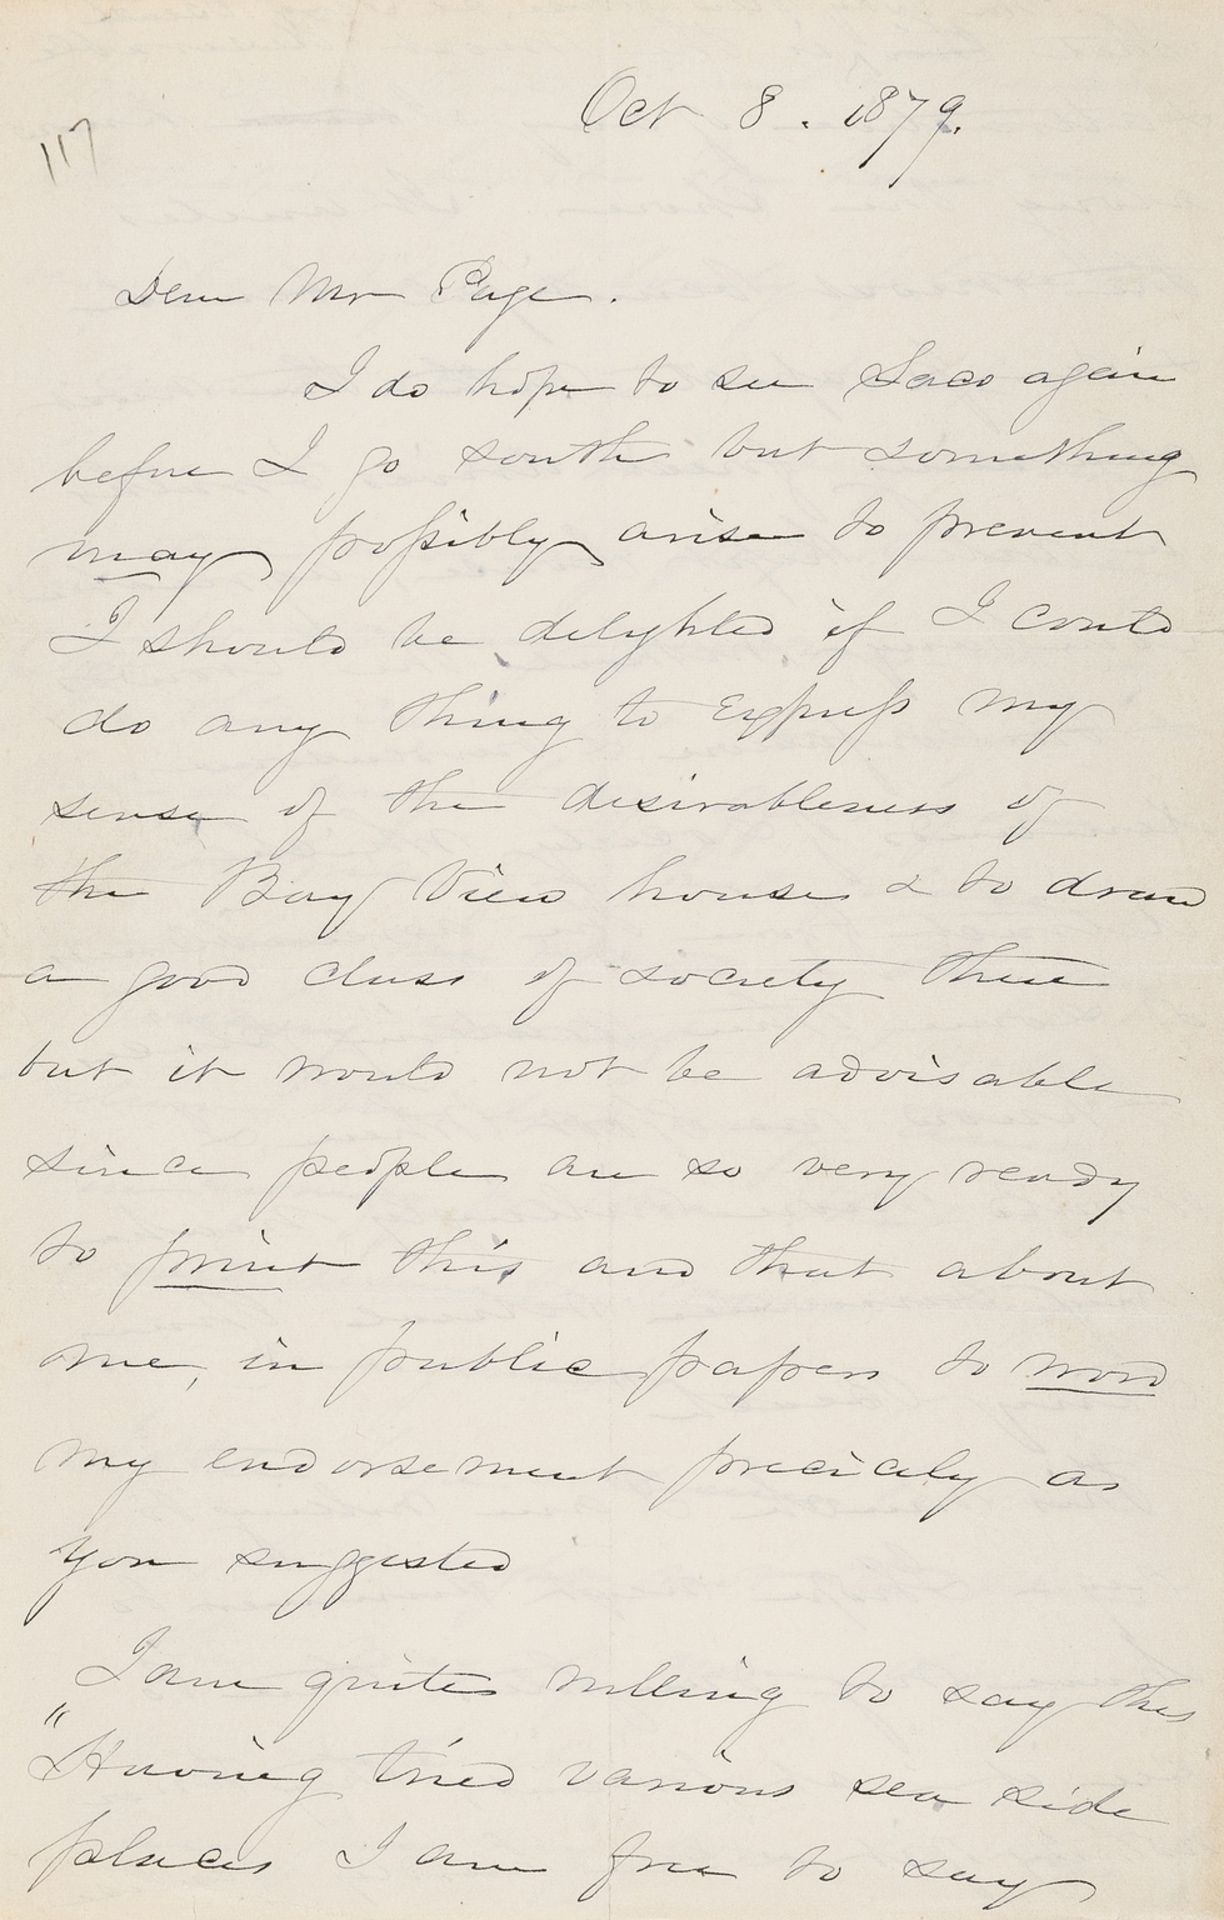 Oct 8. 1879.
117
Dear Mr Page.
I do hope to see Saco again
before I go south but something
may possibly arise to prevent
I should be delighted if I could
do any thing to express my
sense of the desirableness of
the Bay View house & to draw
a good class of society there
but it would not be advisable
since people are so very ready
to print this and that about
me, in public papers to word
my endorsement precicely as
you suggested
I am quite willing to say this
"Having tried various sea side
places I am free to say